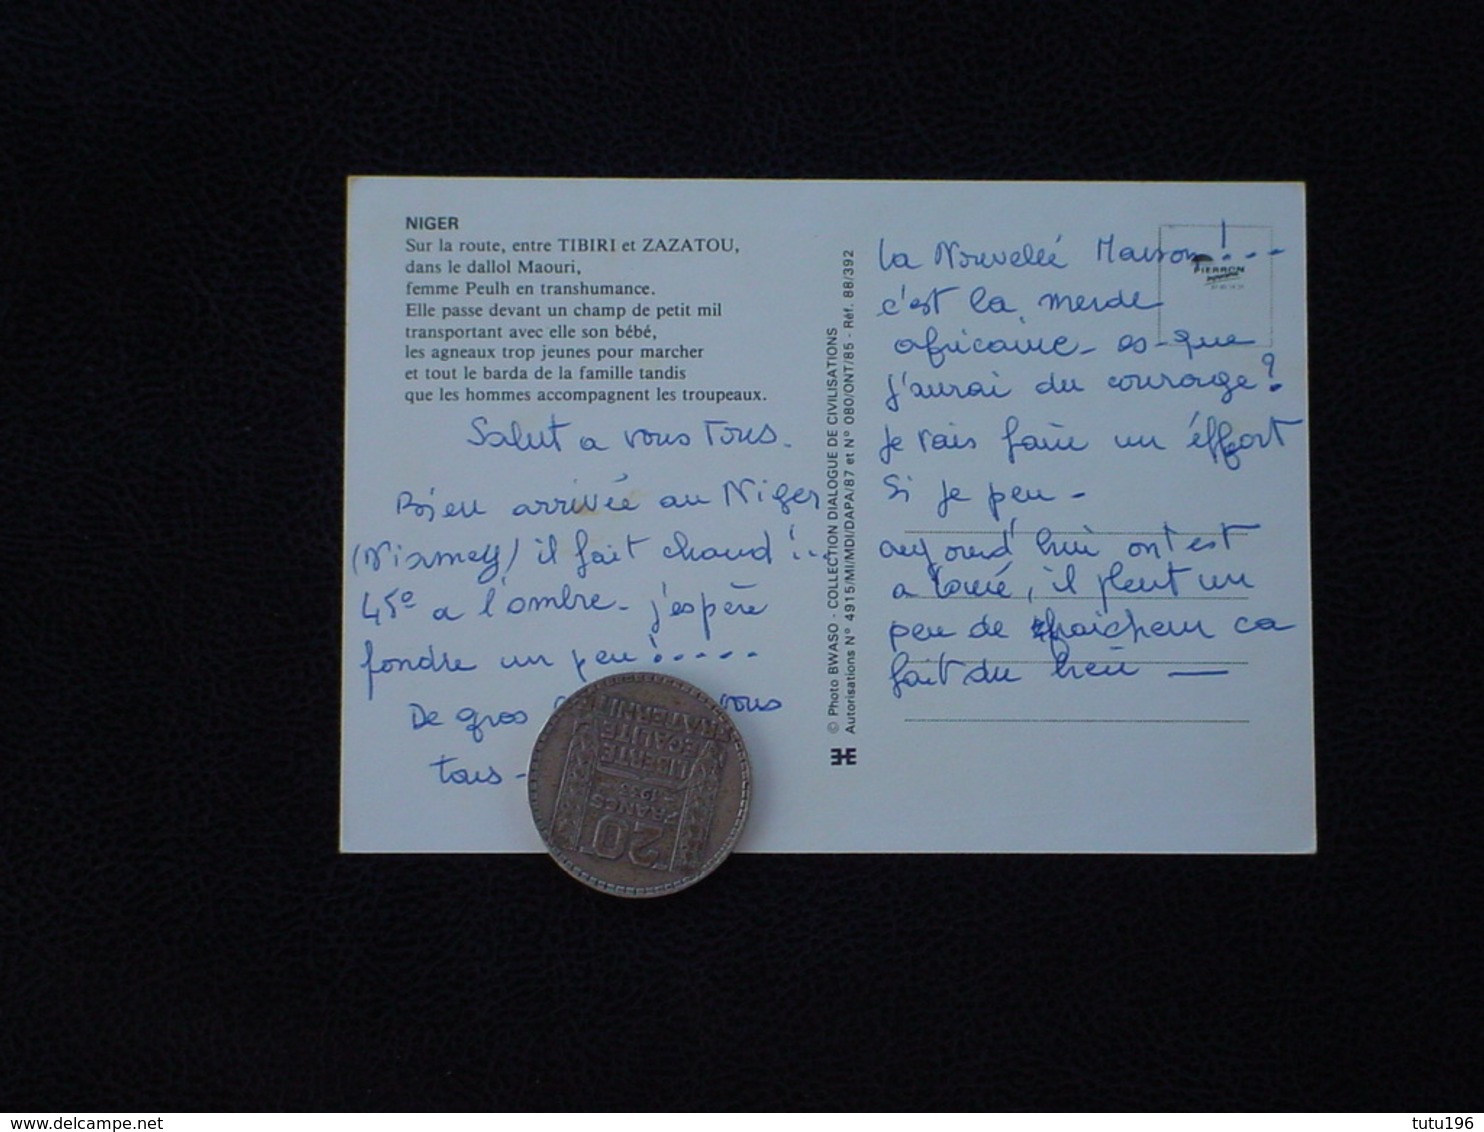 NIGER
Sur la route, entre TIBIRI et ZAZATOU,
dans le dallol Maouri,
femme Peulh en transhumance.
Elle passe devant un champ de petit mil
transportant avec elle son bébé,
les agneaux trop jeunes pour marcher
et tout le barda de la famille tandis
que les hommes accompagnent les troupeaux.
Salut a vous Tous.
Bien arrivée au Niger
(Niamey) il fait chaud !...
45° a l'ombre - j'espère
fondre un peu !....
De gros vous
tous -
© Photo BWASO - COLLECTION DIALOGUE DE CIVILISATIONS
Autorisations N° 4915/MI/MDI/DAPA/87 et N° 080/ONT/85 - Réf. 88/392
la Nouvelle Maison !...
c'est la merde
africaine - es-que
j'aurai du courage ?
Je vais faire un éffort
Si je peu -
aujourd'hui ont est
a Lomé, il pleut un
peu de fraicheur ca
fait du bien —
PIERRON
20
FRANCS
1933
LIBERTE
EGALITE
FRATERNITE
delcampe.net
tutu196